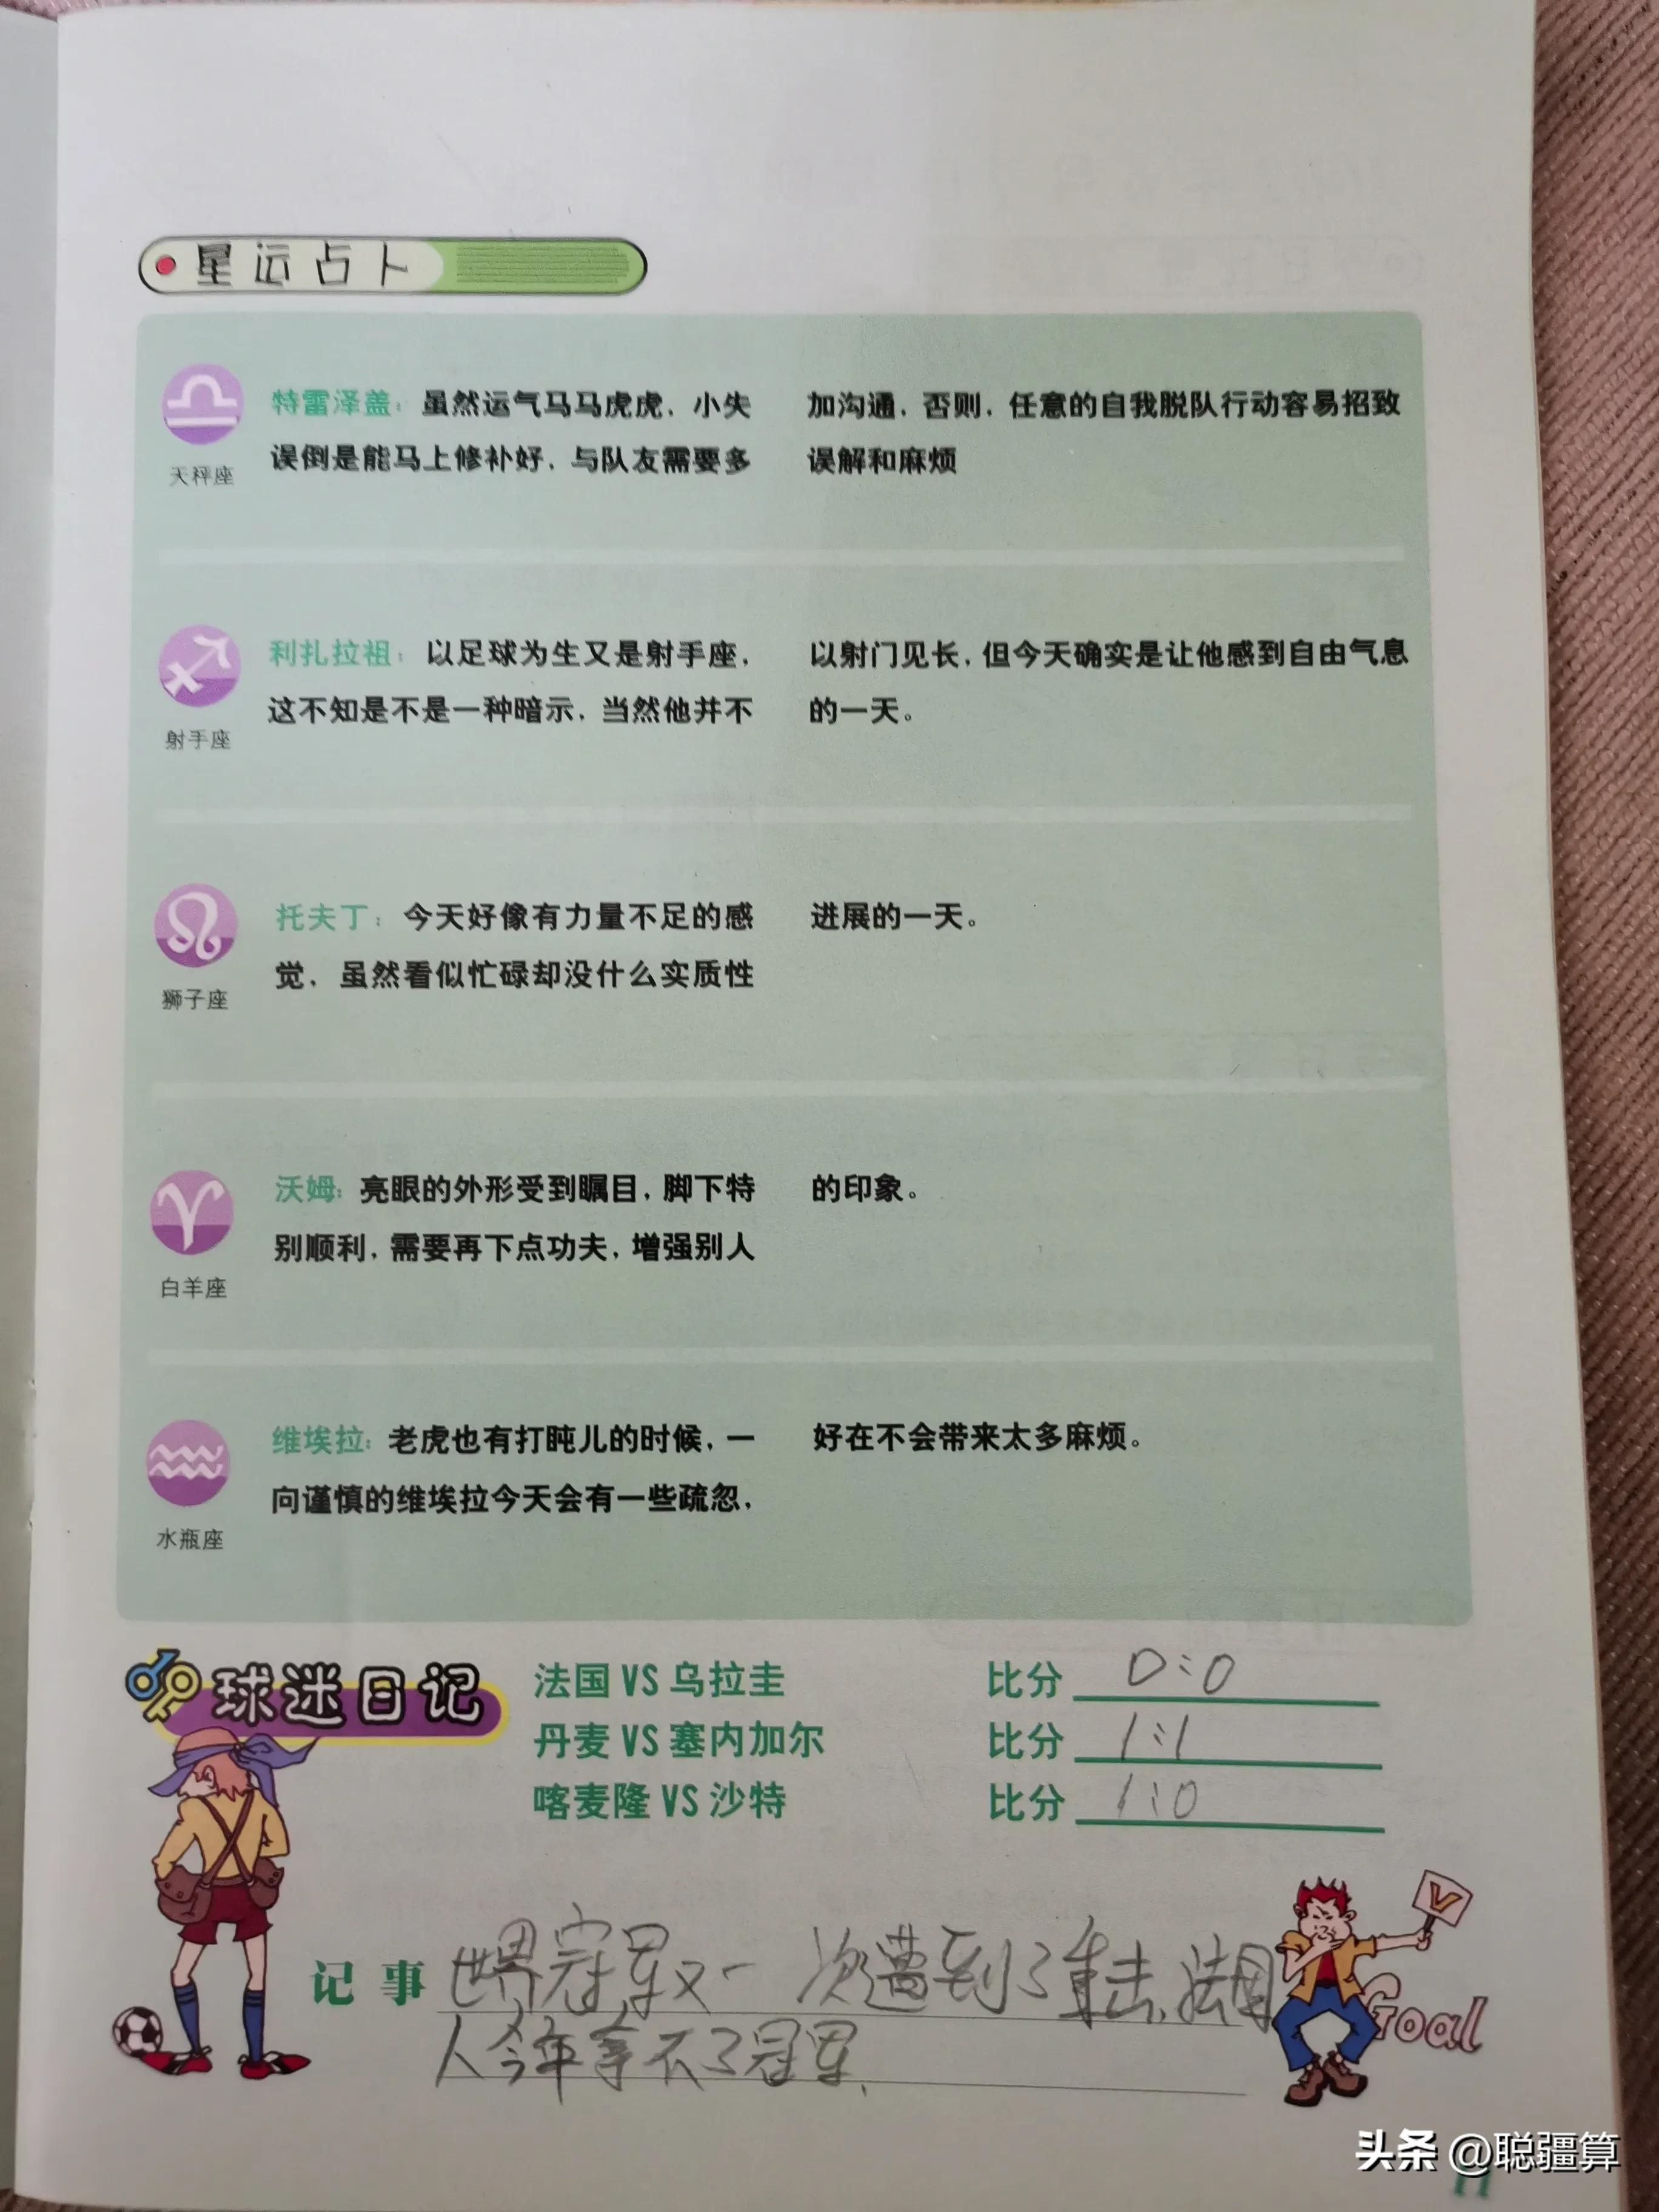 星运占卜
天秤座
特雷泽盖：虽然运气马马虎虎，小失
误倒是能马上修补好，与队友需要多
加沟通，否则，任意的自我脱队行动容易招致
误解和麻烦
射手座
利扎拉祖：以足球为生又是射手座，
这不知是不是一种暗示，当然他并不
以射门见长，但今天确实是让他感到自由气息
的一天。
狮子座
托夫丁：今天好像有力量不足的感
觉，虽然看似忙碌却没什么实质性
进展的一天。
白羊座
沃姆：亮眼的外形受到瞩目，脚下特
别顺利，需要再下点功夫，增强别人
的印象。
水瓶座
维埃拉：老虎也有打盹儿的时候，一
向谨慎的维埃拉今天会有一些疏忽，
好在不会带来太多麻烦。
球迷日记
法国 VS 乌拉圭 比分 0:0
丹麦 VS 塞内加尔 比分 1:1
喀麦隆 VS 沙特 比分 1:0
记事 世界冠军又一次遭到了重击，法国
人今年拿不了冠军.
V
Goal
头条 @聪疆算
11